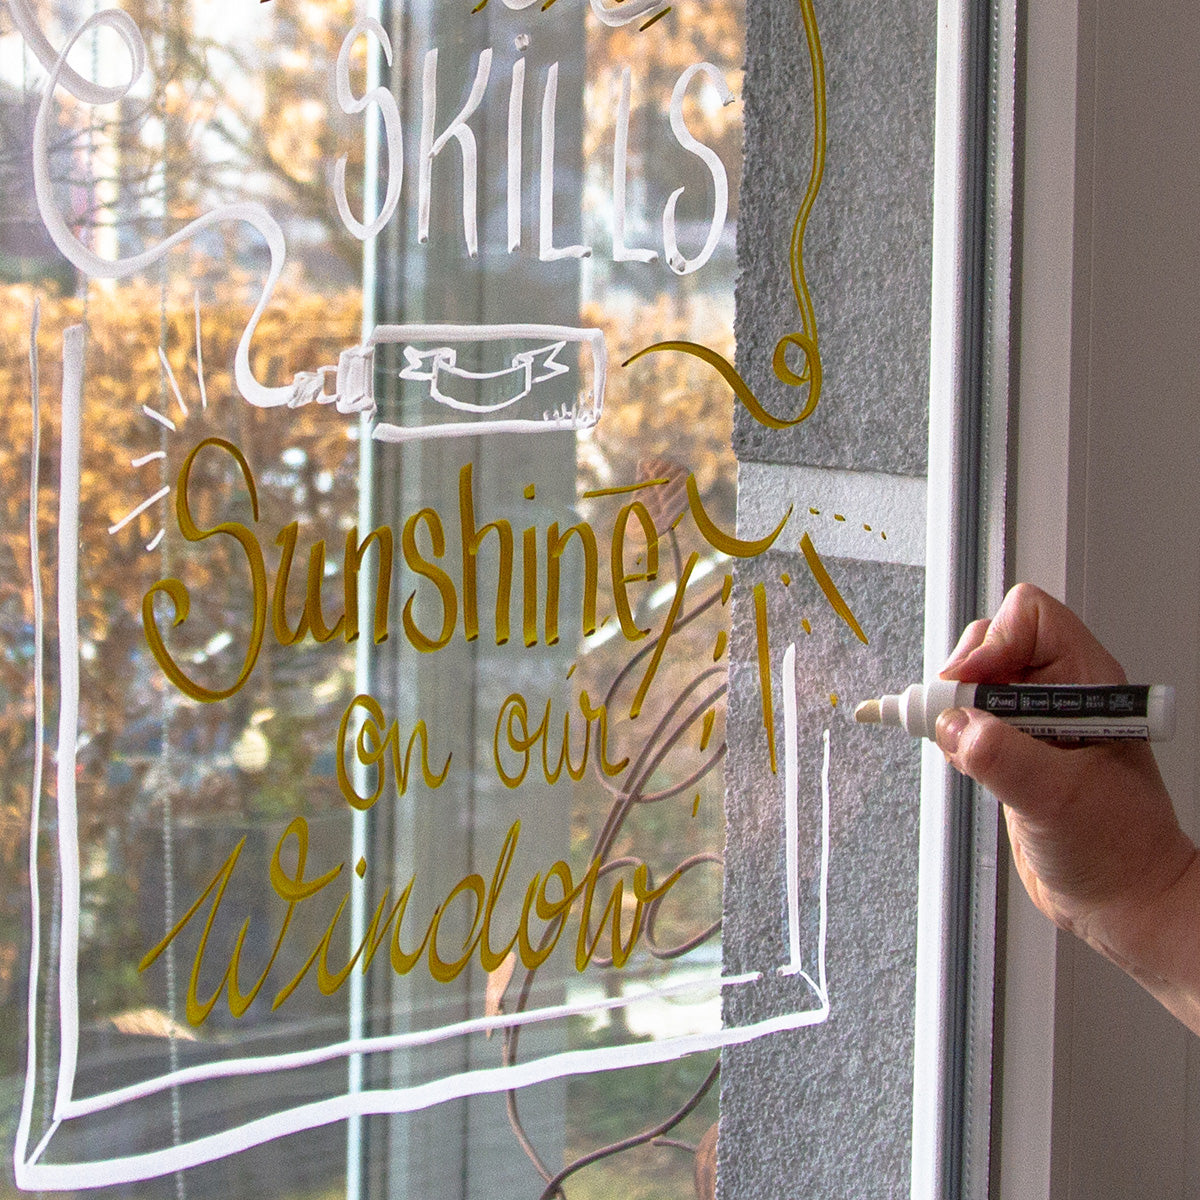 SKILLS
Sunshine
on our
Window